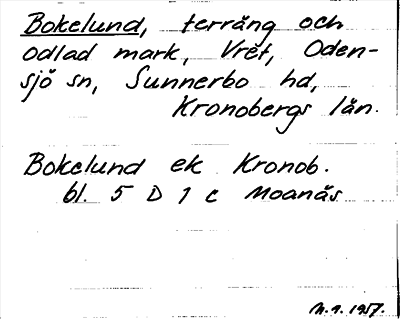 Bokelund, terräng och
odlad mark, Vret, Oden-
sjö sn, Sunnerbo hd,
Kronobergs län.
Bokelund ek Kronob.
bl. 5 D 1 c Moanäs
1957.